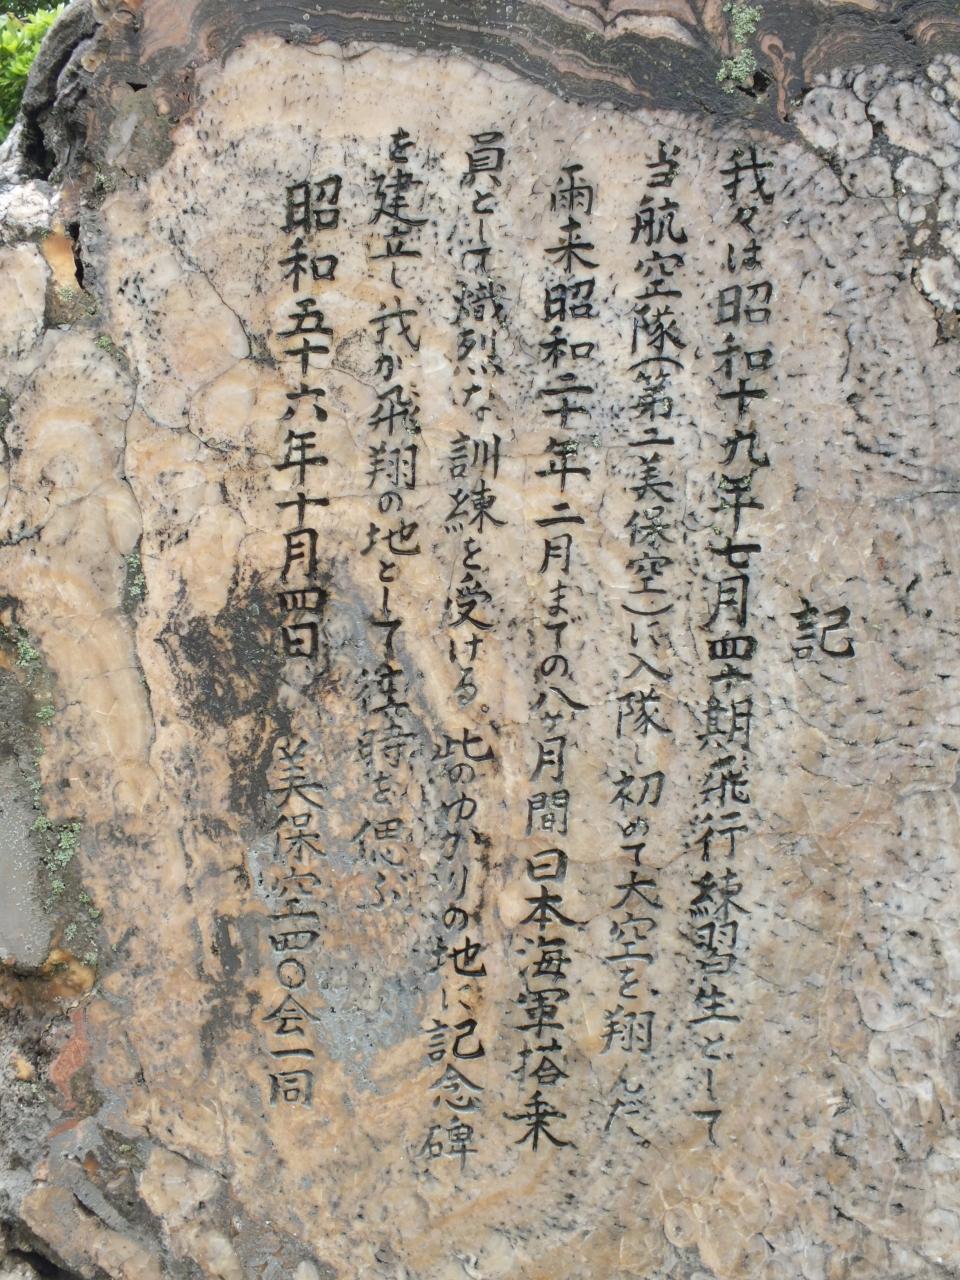 記
我々は昭和十九年七月四十期飛行練習生として
当航空隊（第二美保空）に入隊し初めて大空を翔んだ。
爾来昭和二十年二月までの八ヶ月間日本海軍搭乗
員として熾烈な訓練を受ける。此のゆかりの地に記念碑
を建立し我が飛翔の地として往時を偲ぶ
昭和五十六年十月四日 美保空四〇会一同